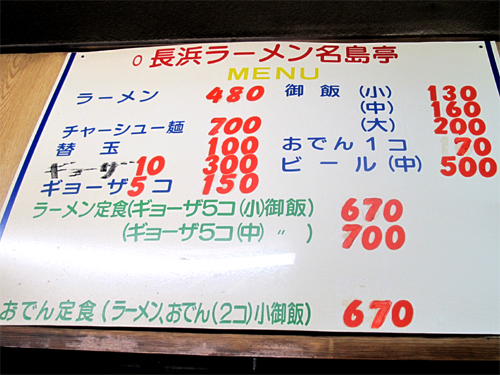 ○長浜ラーメン名島亭
MENU
ラーメン 480
チャーシュー麺 700
替玉 100
ギョーザ 10 300
ギョーザ5コ 150
御飯(小) 130
(中) 160
(大) 200
おでん1コ 70
ビール(中) 500
ラーメン定食(ギョーザ5コ(小)御飯) 670
(ギョーザ5コ(中) 〃 ) 700
おでん定食(ラーメン、おでん(2コ)小御飯) 670